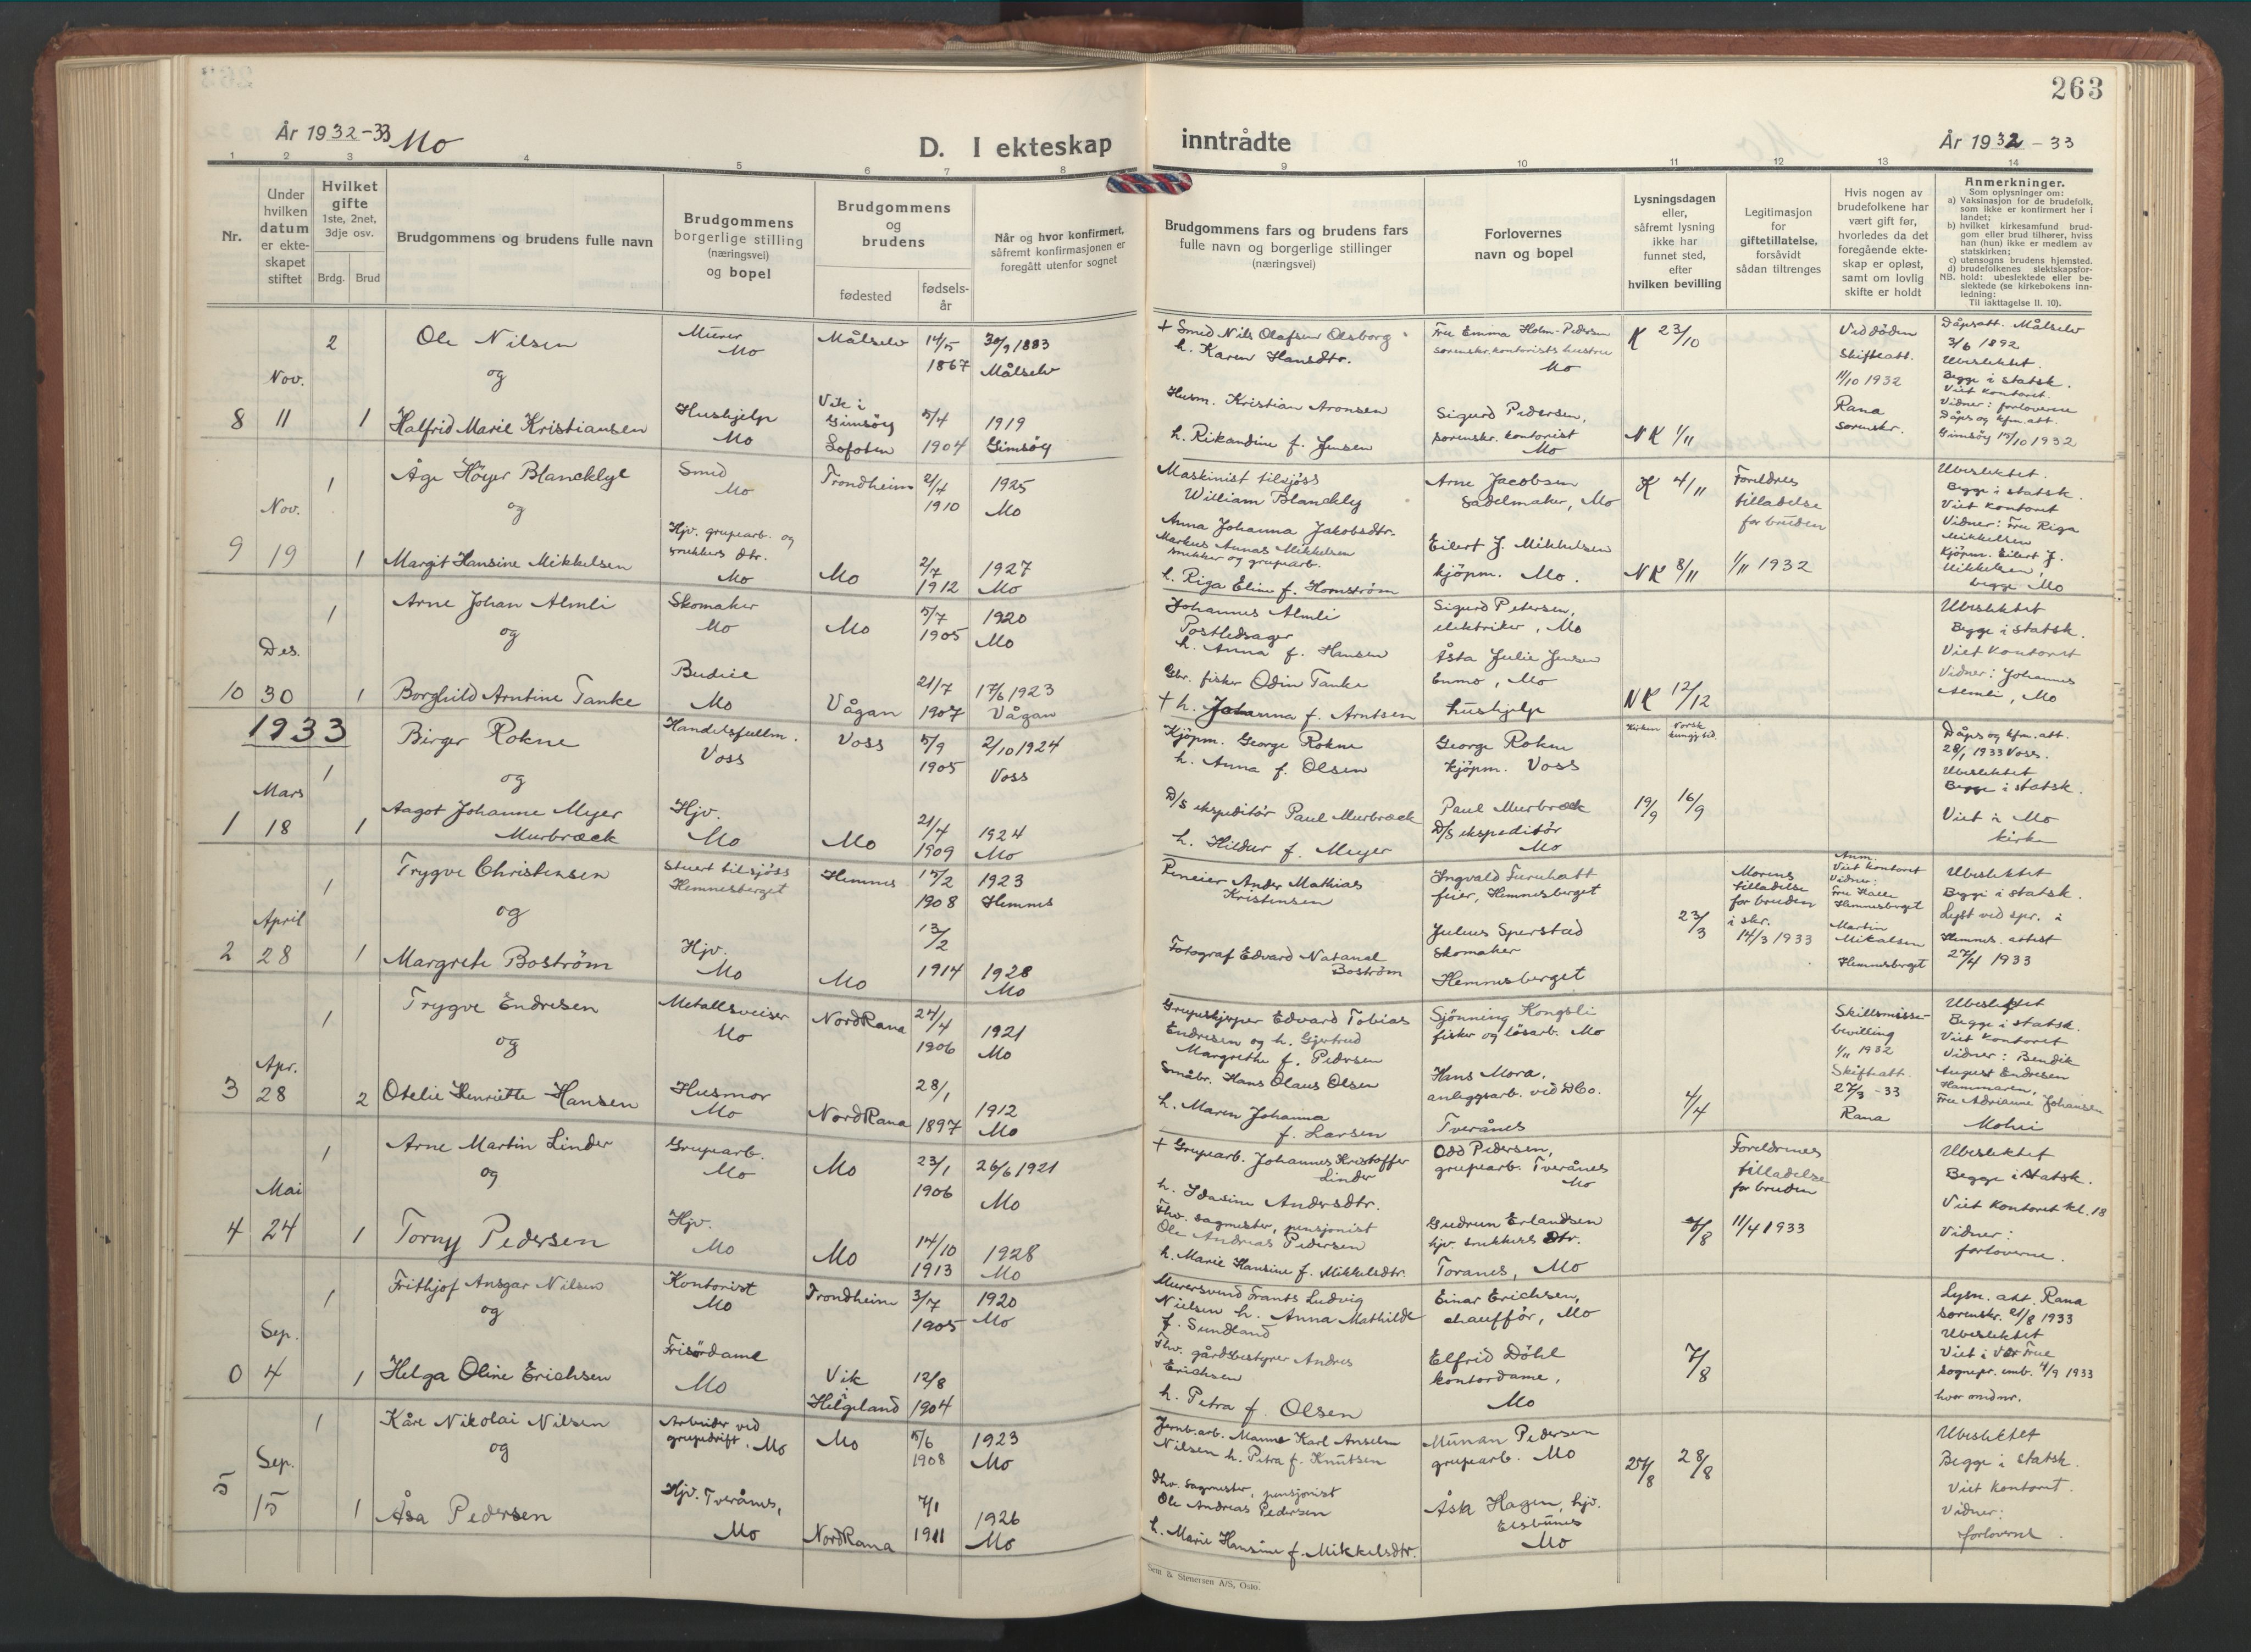 263
År 1932-33 Mo
D. I ekteskap inntrådte
År 1932 - 33
1 2 3 4 5 6 7 8 9 10 11 12 13 14
Nr.
Under hvilken datum er ekte-skapet stiftet
Hvilket gifte
1ste, 2net, 3dje osv.
Brdg. Brud
Brudgommens og brudens fulle navn
Brudgommens borgerlige stilling (næringsvei) og bopel
Brudgommens og brudens
fødested
fødsels-år
Når og hvor konfirmert, såfremt konfirmasjonen er foregått utenfor sognet
Brudgommens fars og brudens fars fulle navn og borgerlige stillinger (næringsvei)
Forlovernes navn og bopel
Lysningsdagen eller, såfremt lysning ikke har funnet sted, efter hvilken bevilling
Legitimasjon for giftetillatelse, forsåvidt sådan tiltrenges
Hvis nogen av brudefolkene har vært gift før, hvorledes da det foregående ekte-skap er opløst, samt om lovlig skifte er holdt
Anmerkninger.
Som oplysninger om:
a) Vaksinasjon for de brudefolk, som ikke er konfirmert her i landet;
b) hvilket kirkesamfund brud-gom eller brud tilhører, hviss han (hun) ikke er medlem av statskirken;
c) utensogns brudens hjemsted.
d) brudefolkenes slektskapsfor-
NB. hold: ubeslektede eller be-slektede (se kirkebokens inn-ledning:
Til iakttagelse II. 10).
8 Nov. 11
2 Ole Nilsen
og
1 Halfrid Marie Kristiansen
Murer
Mo
Hushjelp
Mo
Målselv 14/5 1867 30/9 1883 Målselv
Vik i Gimsöy Lofoten 5/4 1904 1919 Gimsöy
+ Smed Nils Olafsen Olsborg
h. Karen Hansdtr.
Husm. Kristian Aronsen
h. Rikandine f. Jensen
Fru Emma Holm-Pedersen
sorenskr.kontorists hustru
Mo
Sigurd Pedersen,
sorenskr. kontorist
Mo
K 23/10
NK 1/11
Ved döden
Skifteatt.
11/10 1932
Rana
sorenskr.
Dåpsatt. Målselv
3/6 1892
Ubeslektet.
Begge i statsk.
Viet kontoret.
Vidner: forloverne
Dåps og kfm.att.
Gimsöy 15/10 1932
9 Nov. 19
1 Åge Höyer Blancklye
og
1 Margit Hansine Mikkelsen
Smed
Mo
Hjv. grupearb. og
snekkers dtr.
Mo
Trondheim 2/4 1910 1925 Mo
Mo 2/7 1912 1927 Mo
Maskinist tilsjöss
William Blanckley
Anna Johanna Jakobsdtr.
Markus Aunas Mikkelsen
snikker og grupearb.
h. Riga Eline f. Homström
Arne Jacobsen
Sadelmaker, Mo
Eilert J. Mikkelsen
kjöpm. Mo.
K 4/11
NK 8/11
Foreldres
tilladelse
for bruden
1/11 1932
Ubeslektet.
Begge i statsk.
Viet kontoret
Vidner: Fru Riga
Mikkelsen
Kjöpm. Eilert J.
Mikkelsen,
begge Mo
10 Des. 30
1 Arne Johan Almli
og
1 Borghild Arntine Tanke
Skomaker
Mo
Budeie
Mo
Mo 5/7 1905 1920 Mo
Vågan 21/7 1907 17/6 1923 Vågan
Johannes Almli
Postledsager
h. Anna f. Hansen
Gbr. fisker Odin Tanke
+ h. Johanna f. Arntsen
Sigurd Petersen,
elektriker, Mo
Åsta Julie Jensen
Enmo, Mo
hushjelp
NK 12/12
Ubeslektet
Begge i statsk.
Viet kontoret
Vidner: Johannes
Almli, Mo
1933
1 Mars 18
1 Birger Rokne
og
1 Aagot Johanne Meyer
Murbræck
Handelsfullm.
Voss
Hjv.
Mo
Voss 5/9 1905 2/10 1924 Voss
Mo 21/4 1909 1924 Mo
Kjöpm. George Rokne
h. Anna f. Olsen
D/S ekspeditör Paul Murbræck
h. Hildur f. Meyer
George Rokne
kjöpm. Voss
Paul Murbræck
D/S ekspeditör
Mo
Kirken Norsk kungj.tid.
19/9 16/9
Dåps og kfm.att.
28/1 1933 Voss.
Ubeslektet
Begge i statsk.
Viet i Mo
kirke
2 April 28
1 Trygve Christensen
og
1 Margrete Boström
Stuert tilsjöss
Hemnesberget
Hjv.
Mo
Hemnes 15/2 1908 1923 Hemnes
Mo 13/2 1914 1928 Mo
Peneier Ander Mathias
Kristensen
Fotograf Edvard Natanael
Boström
Ingvald Furuhatt
feier, Hemnesberget
Julius Sperstad
Skomaker
Hemnesberget
23/3
Morens
tilladelse
for bruden
i skr.
14/3 1933
Anm.
Viet kontoret
Vidner:
Fru Halle
Hemnesberget
Martin
Mikalsen
Hemnesberget
Ubeslektet
Begge i statsk.
Lyst ved spr. i
Hemnes. attest
27/4 1933
3 Apr. 28
1 Trygve Endresen
og
2 Otelie Henriette Hansen
Metallsveiser
Mo
Husmor
Mo
NordRana 24/4 1906 1921 Mo
NordRana 28/1 1897 1912 Mo
Grupeskjerper Edvard Tobias
Endresen og h. Gjertrud
Margrethe f. Pedersen
Småbr. Hans Olaus Olsen
h. Maren Johanna
f. Larsen
Sjönning Kongsli
fisker og lösarb. Mo
Hans Mora,
anleggsarb. ved DCo.
Tverånes
4/4
Skillsmisse-
bevilling
1/11 1932
Skifteatt.
27/3 -33
Rana
Ubeslektet
Begge i statsk.
Viet kontoret
Vidner: Bendik
August Endresen
Hammaren,
Fru Adrianne Johansen
Mohei
4 Mai 24
1 Arne Martin Linder
og
1 Torny Pedersen
Grupearb.
Mo
Hjv.
Mo
Mo 23/1 1906 26/6 1921 Mo
Mo 14/10 1913 1928 Mo
+ Grupearb. Johannes Kristoffer
Linder
h. Idasine Andersdtr.
Fhv. sagmester, pensjonist
Ole Andreas Pedersen
h. Marie Hansine f. Mikkelsdtr.
Odd Pedersen,
grupearb. Tverånes
Mo
Gudrun Erlandsen
hjv. snekkers dtr.
Toranes, Mo
/8
Foreldrenes
tilladelse
for bruden
11/4 1933
Ubeslektet
Begge i statsk.
Viet kontoret kl. 18
Vidner:
forloverne.
0 Sep. 4
1 Frithjof Ansgar Nilsen
og
1 Helga Oline Erichsen
Kontorist
Mo
Frisördame
Mo
Trondheim 3/7 1905 1920 Mo
Vik Helgeland 12/8 1904
Murersvend Frants Ludvig
Nielsen h. Anna Mathilde
f. Sundland
Fhv. gårdsbestyrer Andres
Erichsen
h. Petra f. Olsen
Einar Erichsen,
chaufför, Mo
Elfrid Döhl
kontordame,
Mo
7/8
Lysn. att. Rana
sorenskr. 21/8 1933
Ubeslektet
Viet i Vor Frue
sognepr. emb. 4/9 1933
hvor omdnr.
5 Sep. 15
1 Kåre Nikolai Nilsen
og
1 Åsa Pedersen
Arbeider ved
grupedrift. Mo
Hjv. Tverånes,
Mo
Mo 5/6 1908 1923 Mo
NordRana 7/1 1911 1926 Mo
Jernb.arb. Manne Karl Anselm
Nilsen h. Petra f. Knutsen
Fhv. Sagmester, pensjonist
Ole Andreas Pedersen
h. Marie Hansine f. Mikkelsdtr.
Munan Pedersen
grupearb. Mo
Åsta Hagen, hjv.
Mo
25/8 28/8
Ubeslektet
Begge i statsk.
Viet kontoret.
Vidner:
forloverne.
Sem & Stenersen A/S, Oslo.